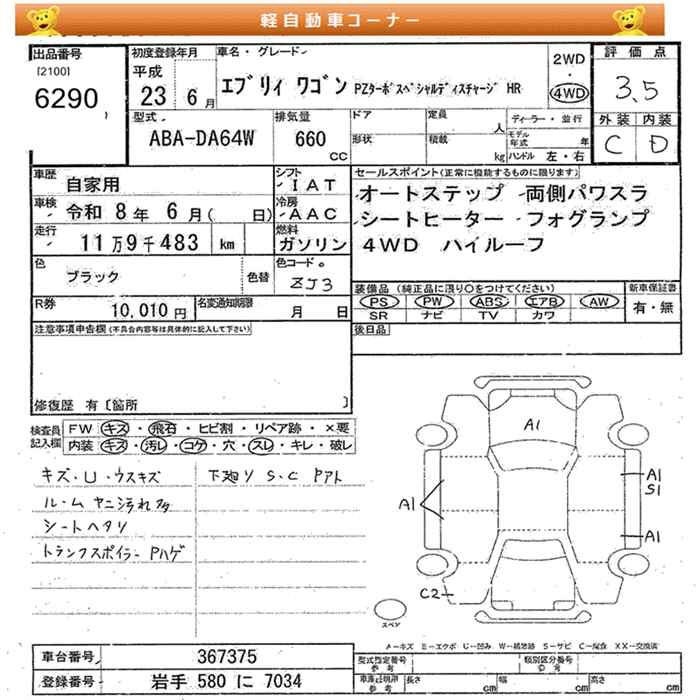 軽自動車コーナー
出品番号
[2100]
6290
初度登録年月
平成
23 6月
車名・グレード
エブリィ ワゴン PZターボスペシャルディスチャージ HR
2WD
・
4WD
評価点
3.5
外装 内装
C D
型式
ABA-DA64W
排気量
660
CC
ドア
形状
定員
人
積載
kg
ディーラー・並行
モデル年式 年
ハンドル 左・右
車歴
自家用
車検
令和 8年 6月( 日)
走行
11万9千483 km
シフト
IAT
冷房
AAC
燃料
ガソリン
色
ブラック
色替
色コードNo.
ZJ3
R券
10,010円
名変通知期限
月 日
セールスポイント(正常に機能するものに限ります)
オートステップ 両側パワスラ
シートヒーター フォグランプ
4WD ハイルーフ
装備品(純正品に限り○をつけてください)
PS PW ABS エアB AW
SR ナビ TV カワ
新車保証書
有・無
後日品
注意事項申告欄(不具合内容等は具体的に記入して下さい)
修復歴 有〔箇所 〕
検査員記入欄
FW キズ・飛石・ヒビ割・リペア跡・×要
内装 キズ・汚レ・コゲ・穴・スレ・キレ・破レ
キズ・U・ウスキズ
ルームヤニ汚れ多
シートヘタリ
トランクスポイラーPハゲ
下廻り S.C Pアト
A1
A1
A1
S1
A1
C2
スペア
A=キズ E=エクボ U=凹ミ W=補修跡 S=サビ C=腐食 XX=交換済
車台番号
367375
登録番号
岩手 580 に 7034
型式指定番号
参考
類別区分番号
参考
車庫証明用
参考
長さ cm
幅 cm
高さ cm